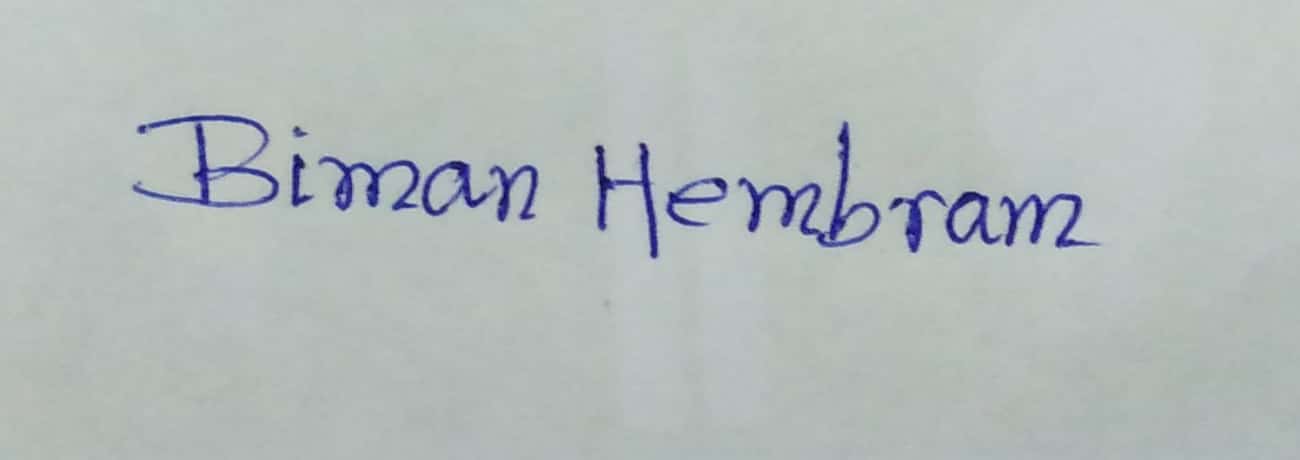 Biman Hembram